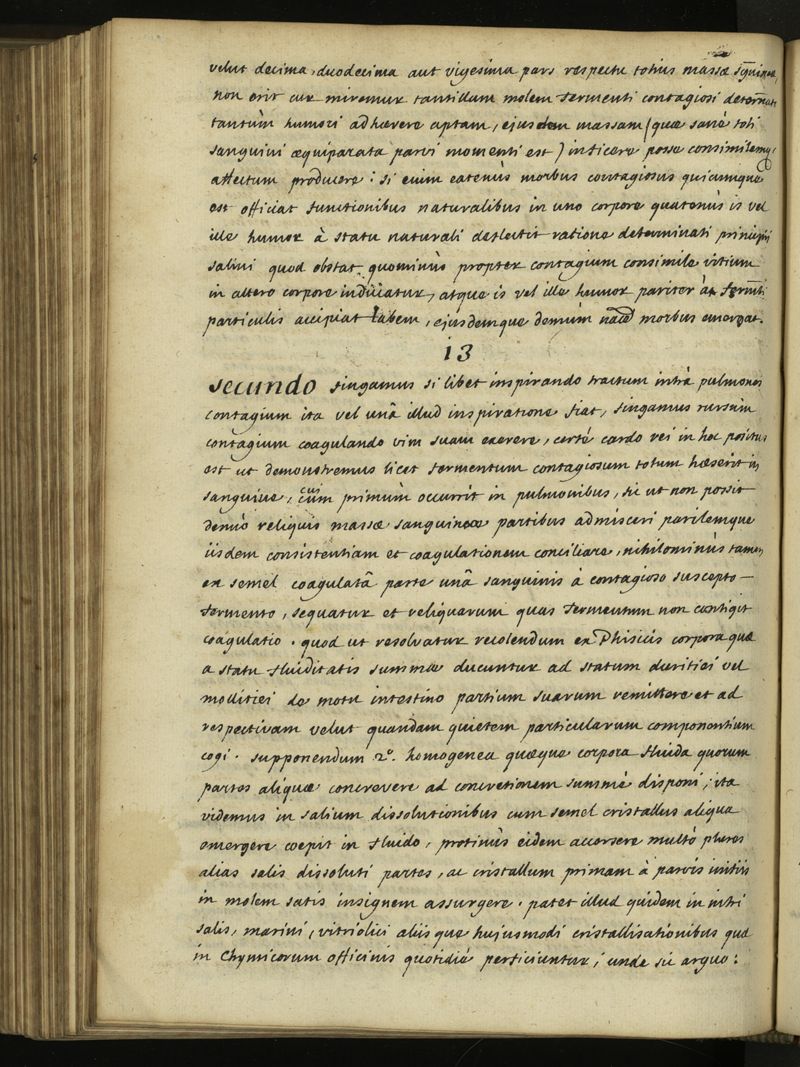 velut decima, duodecima aut vigesima pars respectu totius massæ
non erit cur miremur tantillam molem fermenti contagiosi
tantùm humori adhærere aptam, ejusdem massam (quæ sanè toti
sanguini æquiparata parvi momenti est) inficere posse consimilemq;
affectum producere: si enim eatenùs morbus contagiosus quicumque
est officiat functionibus naturalibus in uno corpore quatenùs is vel
ille humor à statu naturali deflectit ratione determinati principii
salini quod obstat quominùs propter contagium consimile vitium
in altero corpore inducatur, atque is vel ille humor pariter à
particulis accipiat labem, ejusdemque demùm morbus emergat.
13
secundo fingamus si libet inspirando tractum intrà pulmones
contagium ita vel unâ illud inspiratione fiat, fingamus rursùm
contagium coagulando vim suam exerere, certè cardo rei in hoc positus
est ut demonstremus licet fermentum contagiosum totum hæserit in
sanguine, cui cùm primùm occurrit in pulmonibus, sic ut non possit
denuò reliquis massæ sanguineæ partibus admisceri parilemque
iisdem consistentiam et coagulationem conciliare, nihilominùs tamen
ex semel coagulatâ parte unâ sanguinis à contagioso suscepto-
fermento, sequatur et reliquarum quas fermentum non contigit
coagulatio. quod ut resolvatur recolendum ex Phisicis corpora quæ
a statu fluiditatis summæ ducuntur ad statum duritiei vel
mollitiei de motu intestino partium suarum remittere et ad
respectivam velut quandam quietem particularum componentium
cogi. supponendum 2º. homogenea quæque corpora fluida quorum
partes aliquæ concrevere ad concretionem summè disponi, ita
videmus in salium dissolutionibus cum semel cristallus aliqua
emergere coepit in fluido, protinùs eidem accersere multò plures
alias salis dissoluti partes, ac cristallum primam à parvis initiis
in molem satis insignem assurgere. patet illud quidem in nitri
salis, marini, vitriolici aliisque hujusmodi cristallisationibus quæ
in Chymicorum officinis quotidiè perficiuntur, unde sic arguo: